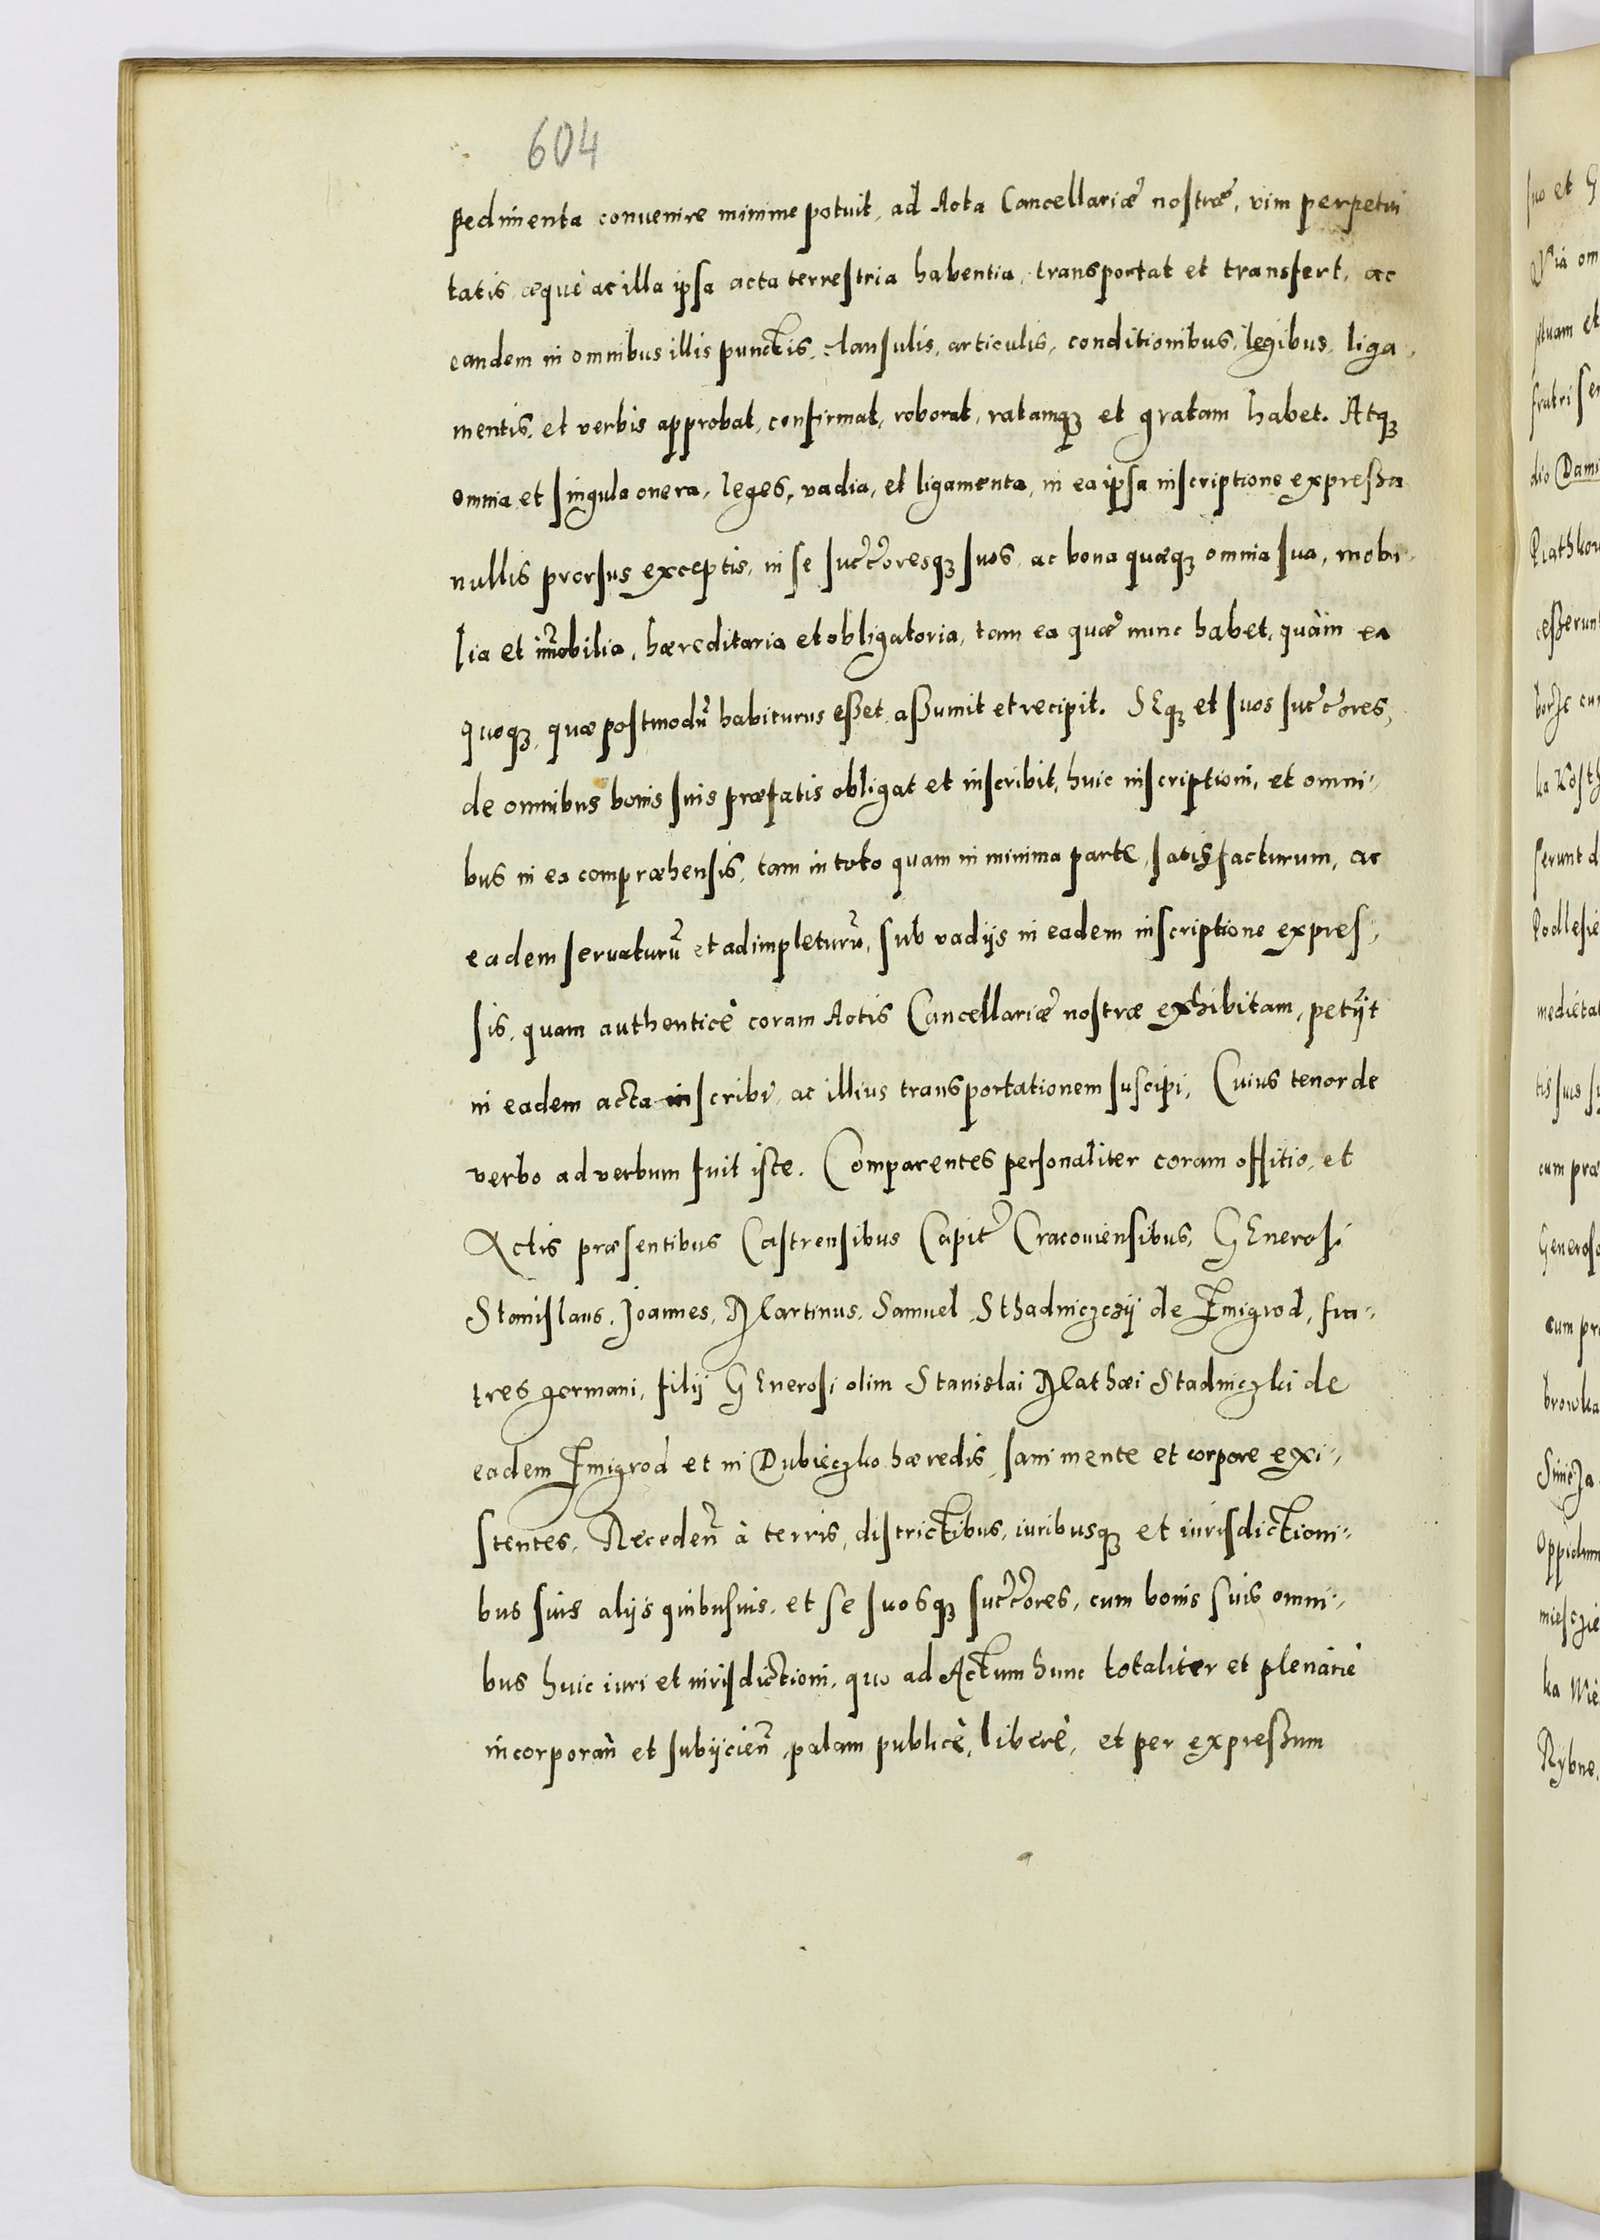 604
pedimenta convenire minime potuit, ad Acta Cancellariæ nostræ, vim perpetui
tatis, æquè ac illa ipsa acta terrestria habentia, transportat et transfert, ac
eandem in omnibus illis punctis, clansulis, articulis, conditionibus, legibus, liga,
mentis, et verbis approbat, confirmat, roborat, ratamqꝫ et gratam habet. Atqꝫ
omnia et singula onera, leges, vadia, et ligamenta, in ea ipsa inscriptione expressa
nullis prorsus exceptis, in se succ̃oresqꝫ suos, ac bona quæqꝫ omnia sua, mobi,
lia et im̃obilia, hæreditaria et obligatoria, tam ea quæ nunc habet, quàm ea
quoqꝫ, quæ postmodũ habiturus esset, assumit et recipit. SEqꝫ et suos succ̃ores,
de omnibus bonis suis præfatis obligat et inscribit, huic inscriptioni, et omni,
bus in ea compræhensis, tam in toto quam in minima parte, satisfacturum, ac
eadem servaturũ et adimpleturũ, sub vadijs in eadem inscriptione expres,
sis, quam authenticè coram Actis Cancellariæ nostræ exhibitam, petijt
in eadem acta inscribi, ac illius transportationem suscipi, Cuius tenor de
verbo ad verbum fuit iste. Comparentes personaliter coram offitio, et
Actis præsentibus Castrensibus Capit̃ Cracoviensibus, GEnerosi
Stanislaus, Joannes, Martinus, Samuel, Sthadniczczij de Zmigrod, fra,
tres germani, filij GEnerosi olim Stanislai Mathæi Stadniczki de
eadem Zmigrod et in Dubieczko hæredis, sani mente et corpore exi,
stentes, Recedeñ à terris, districtibus, iuribusqꝫ et iurisdictioni,
bus suis alijs quibusuis, et se suosqꝫ succ̃ores, cum bonis suis omni,
bus huic iuri et iurisdictioni, quo ad Actum hunc totaliter et plenariè
incorporañ et subijcieñ, palam publicè, liberè, et per expressum